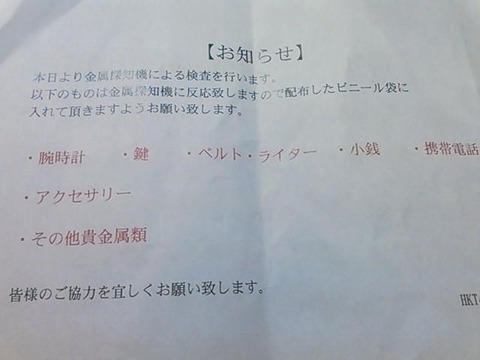 【お知らせ】
本日より金属探知機による検査を行います。
以下のものは金属探知機に反応致しますので配布したビニール袋に
入れて頂きますようお願い致します。
・腕時計 ・鍵 ・ベルト・ライター ・小銭 ・携帯電話
・アクセサリー
・その他貴金属類
皆様のご協力を宜しくお願い致します。
HKT